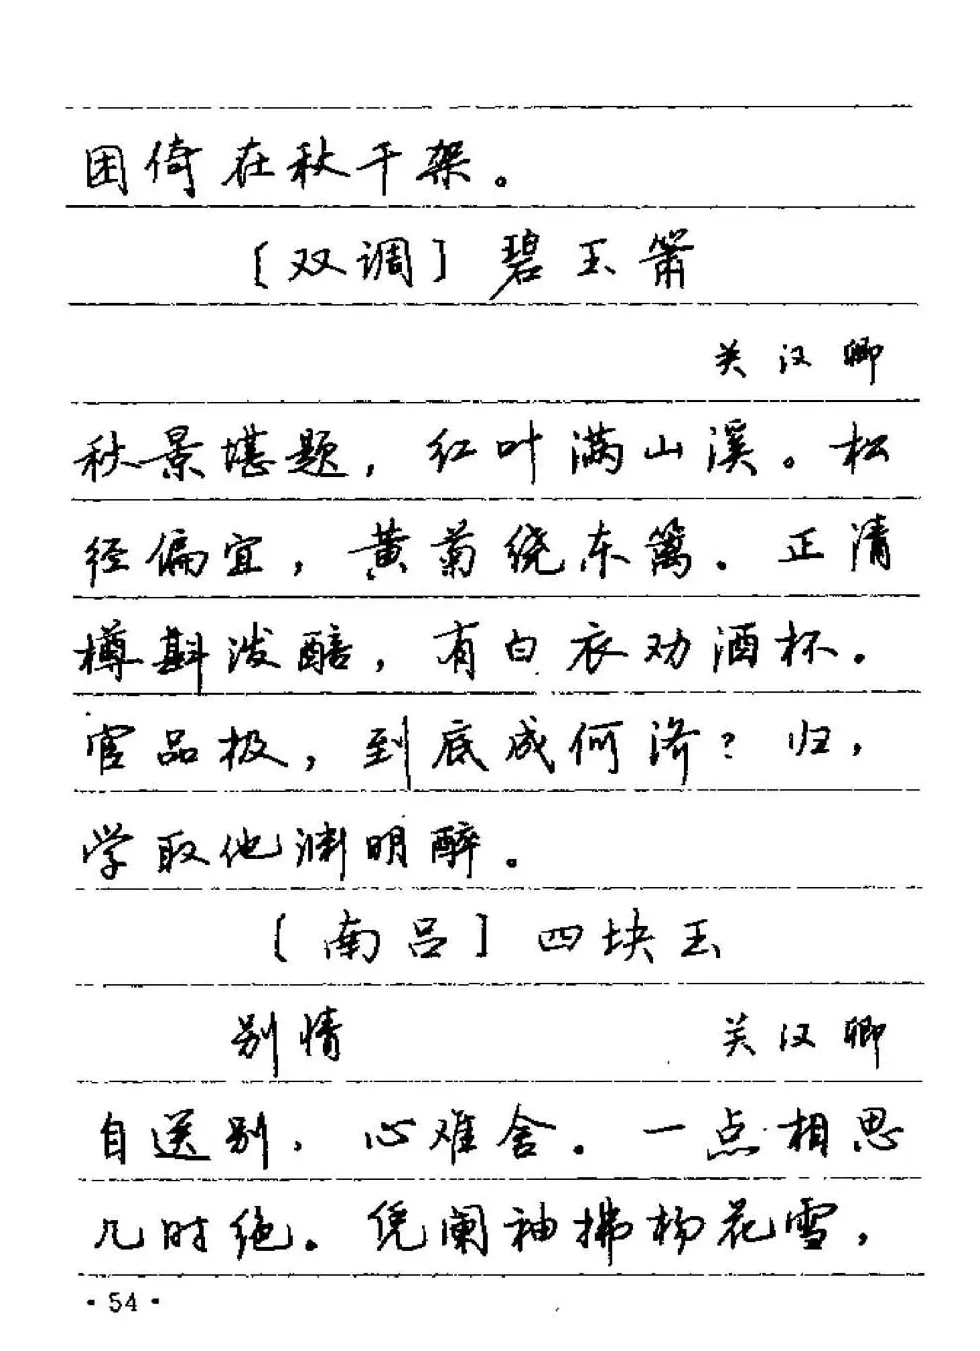 困倚在秋千架。
［双调］碧玉箫
关汉卿
秋景堪题，红叶满山溪。松
径偏宜，黄菊绕东篱。正清
樽斟泼醅，有白衣劝酒杯。
官品极，到底成何济？归，
学取他渊明醉。
［南吕］四块玉
别情 关汉卿
自送别，心难舍。一点相思
几时绝。凭阑袖拂杨花雪，
·54·